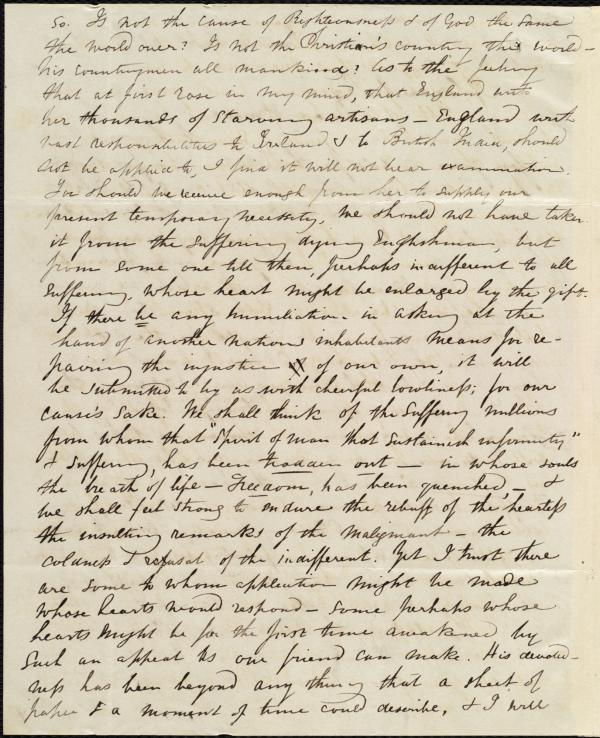 so. Is not the cause of Righteousness & of God the same
the world over? Is not the Christian's country the world –
his countrymen all mankind? As to the feeling
that at first rose in my mind, that England with
her thousands of starving artisans – England with
vast responsibilities to Ireland & to British India, should
not be applied to, I find it will not bear examination.
For should we receive enough from her to supply our
present temporary necessity, we should not have taken
it from the suffering dying Englishman, but
from some one till then, perhaps indifferent to all
suffering, whose heart might be enlarged by the gift.
If there be any humiliation in asking at the
hand of another nation's inhabitants means for re-
pairing the injustice of our own, it will
be submitted to by us with cheerful lowliness; for our
cause's sake. We shall think of the suffering millions
from whom that "Spirit of man that sustaineth infirmity"
& suffering, has been trodden out – in whose souls
the breath of life – Freedom, has been quenched, – &
we shall feel strong to endure the rebuff of the heartless
the insulting remarks of the malignant – the
coldness & refusal of the indifferent. Yet I trust there
are some to whom application might be made
whose hearts would respond – some perhaps whose
hearts might be for the first time awakened by
such an appeal as our friend can make. His devoted-
ness has been beyond any thing that a sheet of
paper & a moment of time could describe, & I will